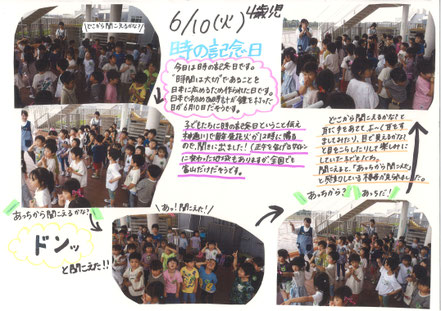 どこから聞こえるかな?
6/10(火) 4歳児
時の記念日
今日は時の記念日です。
"時間は大切"であることを
日本に広めるため作られた日です。
日本で初めて時計が鐘を打った
日が6月10日だそうです。
子どもたちに時の記念日ということを伝え
が12時に鳴る
ので、聞きに出ました!
全国でも
富山だけだそうです。
どこから聞こえるかなと
耳に手をあてて、よーく耳をす
ましてみたり、目で見えるかな?
と目をこらしたりして楽しみに
していた子どもたち。
聞こえると、「あっちから聞こえた」
と反応している様子が見られました。
あっちから聞こえるかな?
ドンッ
と聞こえた!!
あっ!聞こえた!
あっちから?
あっちだ!